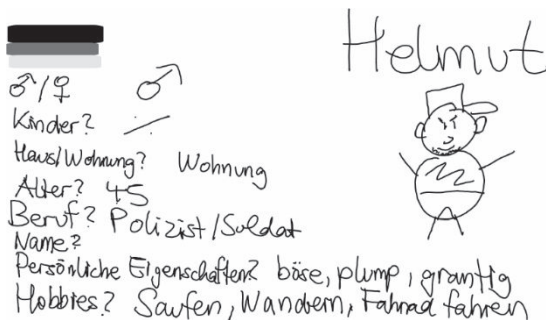 Helmut
♂/♀ ♂
Kinder? ./.
Haus/Wohnung? Wohnung
Alter? 45
Beruf? Polizist/Soldat
Name?
Persönliche Eigenschaften? böse, plump, grantig
Hobbies? Saufen, Wandern, Fahrrad fahren